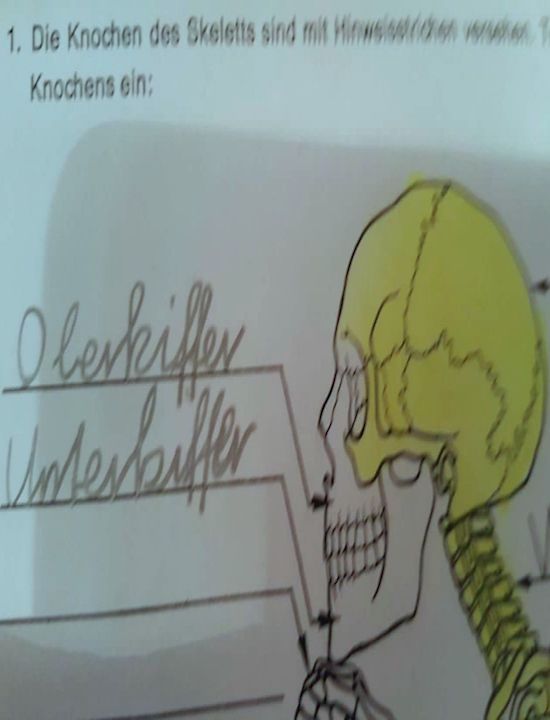 1. Die Knochen des Skeletts sind mit Hinweisstrichen versehen.
Knochens ein:
Oberkiffer
Unterkiffer